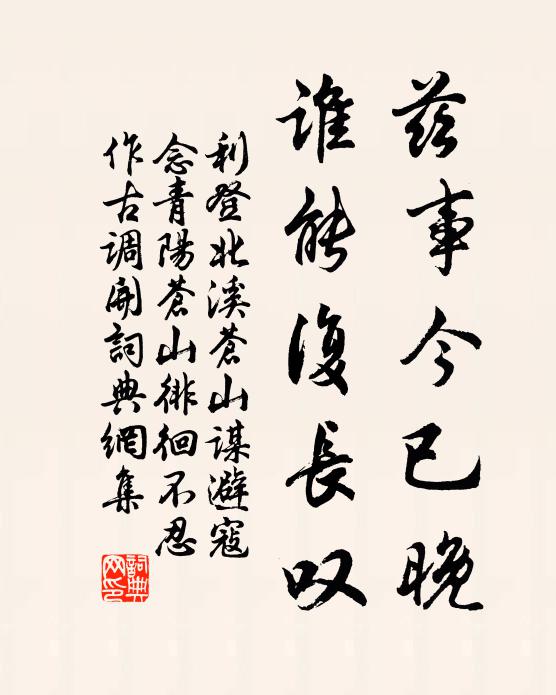 茲事今已晚
誰能復長叹
利登北溪蒼山謀避寇
念青陽蒼山徘徊不忍
作古調開詞典網集
詞典网印